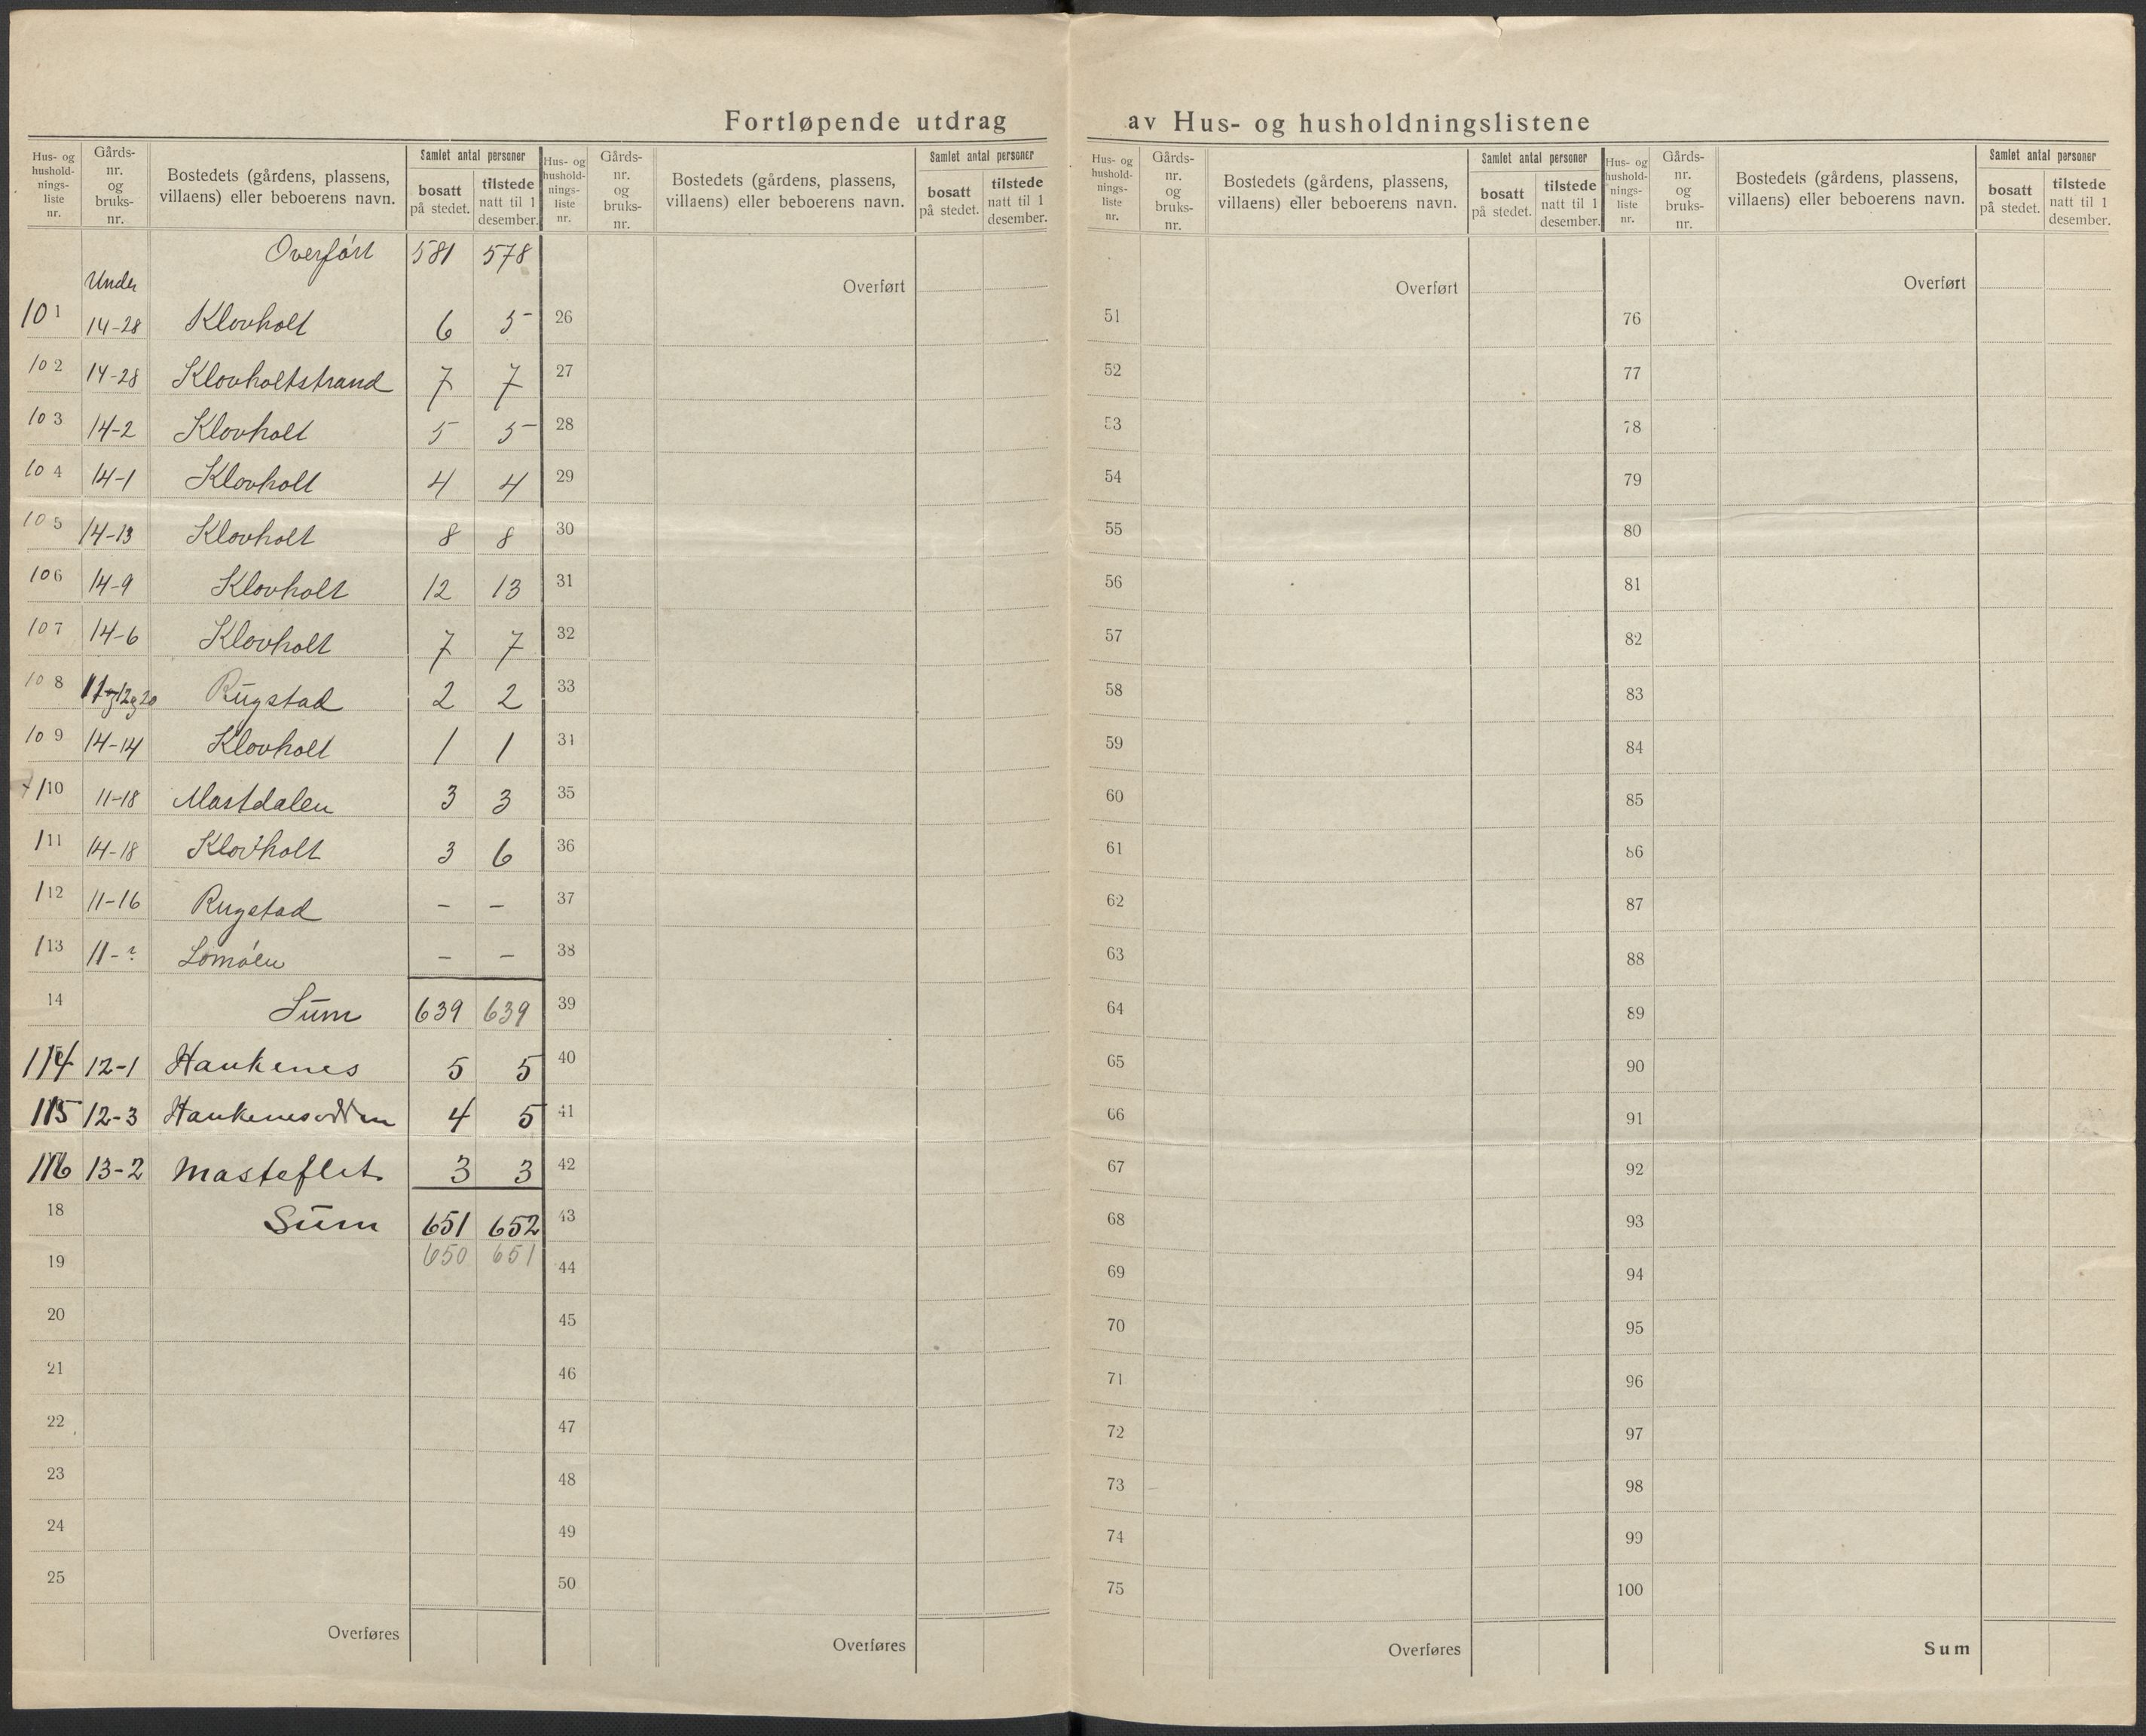 Fortløpende utdrag av Hus- og husholdningslistene
Hus- og hushold-nings-liste nr. | Gårds-nr. og bruks-nr. | Bostedets (gårdens, plassens, villaens) eller beboerens navn. | Samlet antal personer | bosatt på stedet. | tilstede natt til 1 desember.
Overført 581 578
Under
101 14-28 Klovholt 6 5
102 14-28 Klovholtstrand 7 7
103 14-2 Klovholt 5 5
104 14-1 Klovholt 4 4
105 14-13 Klovholt 8 8
106 14-9 Klovholt 12 13
107 14-6 Klovholt 7 7
108 Rugstad 2 2
109 14-14 Klovholt 1 1
110 11-18 Mastdalen 3 3
111 14-18 Klovholt 3 6
112 11-16 Rugstad - -
113 11-? Lomoen - -
14 Sum 639 639
114 12-1 Haukenes 5 5
115 12-3 Haukenesodden 4 5
116 13-2 Masteflet 3 3
18 Sum 651 652
19 650 651
20
21
22
23
24
25
Overføres
Hus- og hushold-nings-liste nr. | Gårds-nr. og bruks-nr. | Bostedets (gårdens, plassens, villaens) eller beboerens navn. | Samlet antal personer | bosatt på stedet. | tilstede natt til 1 desember.
Overført
26
27
28
29
30
31
32
33
34
35
36
37
38
39
40
41
42
43
44
45
46
47
48
49
50
Overføres
Hus- og hushold-nings-liste nr. | Gårds-nr. og bruks-nr. | Bostedets (gårdens, plassens, villaens) eller beboerens navn. | Samlet antal personer | bosatt på stedet. | tilstede natt til 1 desember.
Overført
51
52
53
54
55
56
57
58
59
60
61
62
63
64
65
66
67
68
69
70
71
72
73
74
75
Overføres
Hus- og hushold-nings-liste nr. | Gårds-nr. og bruks-nr. | Bostedets (gårdens, plassens, villaens) eller beboerens navn. | Samlet antal personer | bosatt på stedet. | tilstede natt til 1 desember.
Overført
76
77
78
79
80
81
82
83
84
85
86
87
88
89
90
91
92
93
94
95
96
97
98
99
100
Sum